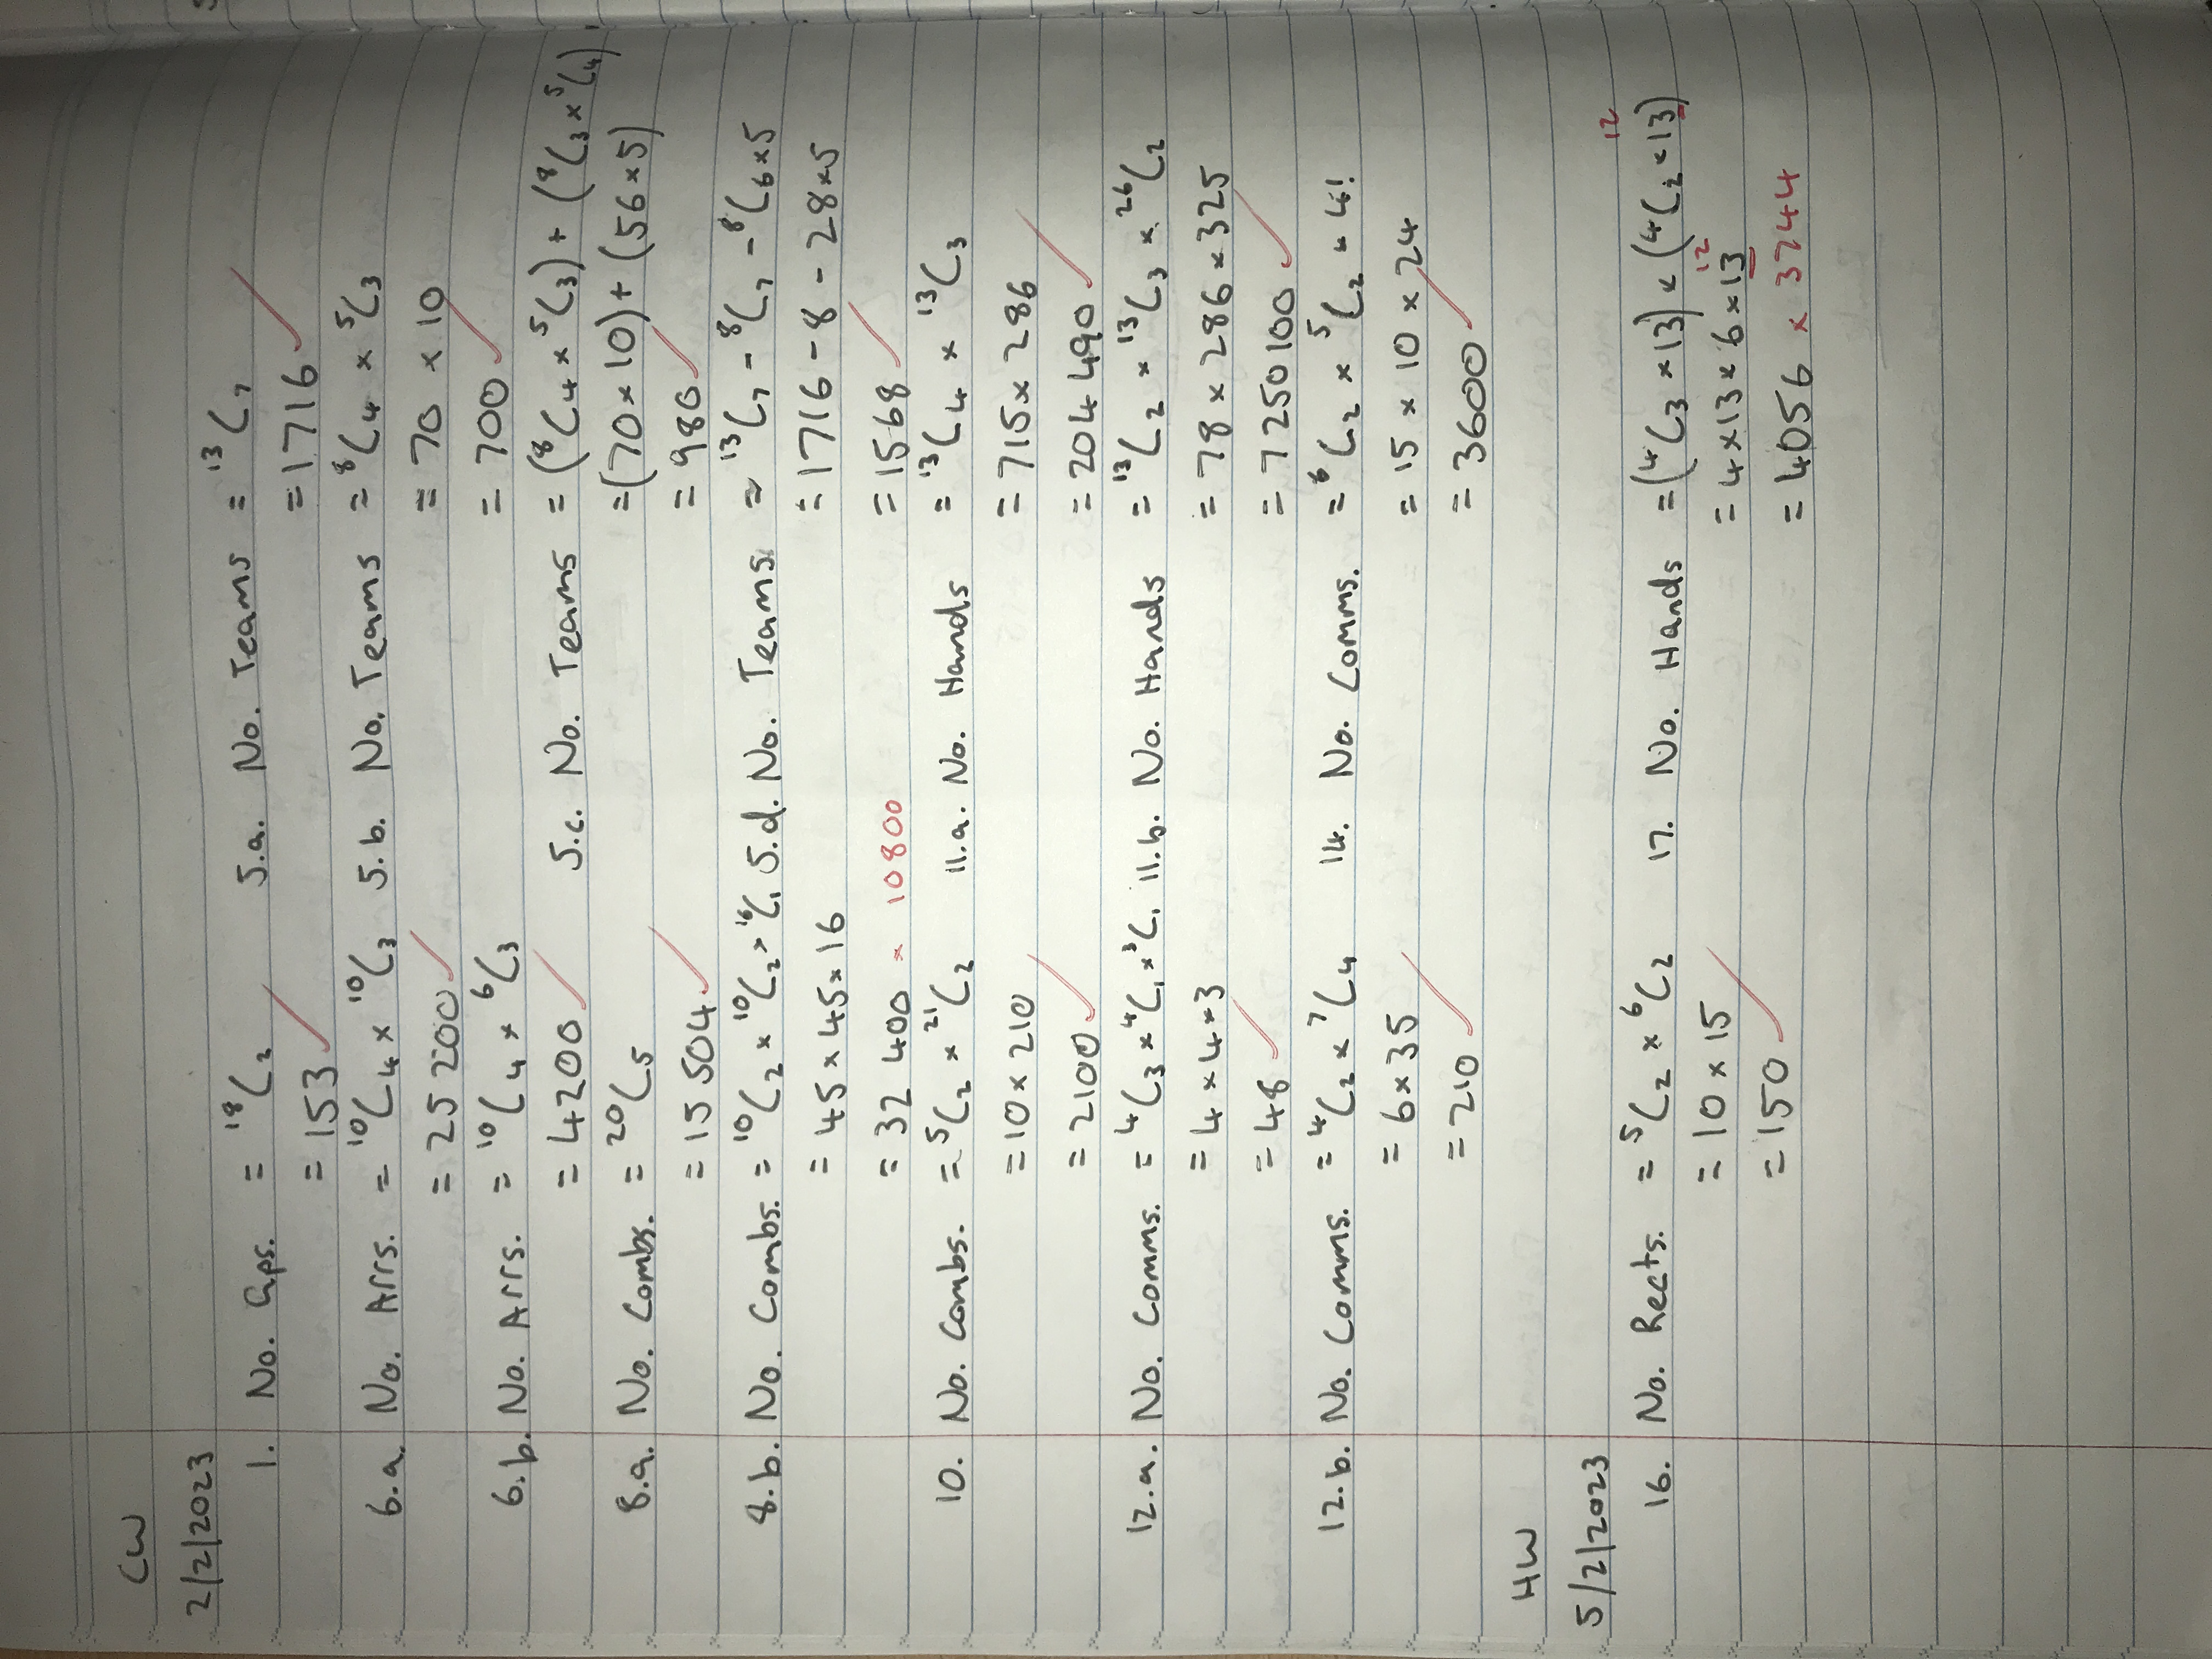 CW
2/2/2023
1. No. Gps. = ¹⁸C₂
= 153 ✓
6.a. No. Arrs. = ¹⁰C₄ × ¹⁰C₃
= 25 200 ✓
6.b. No. Arrs. = ¹⁰C₄ × ⁶C₃
= 4200 ✓
8.a. No. Combs. = ²⁰C₅
= 15 504 ✓
8.b. No. Combs. = ¹⁰C₂ × ¹⁰C₂ × ¹⁶C₁
= 45 × 45 × 16
= 32 400 × 10800
10. No. Combs. = ⁵C₂ × ²¹C₂
= 10 × 210
= 2100 ✓
12.a. No. Comms. = ⁴C₃ × ⁴C₁ × ³C₁
= 4 × 4 × 3
= 48 ✓
12.b. No. Comms. = ⁴C₂ × ⁷C₄
= 6 × 35
= 210 ✓
5.a. No. Teams = ¹³C₇
= 1716 ✓
5.b. No. Teams = ⁸C₄ × ⁵C₃
= 70 × 10
= 700 ✓
5.c. No. Teams = (⁸C₄ × ⁵C₃) + (⁸C₃ × ⁵C₄)
= (70 × 10) + (56 × 5)
= 980 ✓
5.d. No. Teams = ¹³C₇ - ⁸C₇ - ⁸C₆ × 5
= 1716 - 8 - 28 × 5
= 1568 ✓
11.a. No. Hands = ¹³C₄ × ¹³C₃
= 715 × 286
= 204 490 ✓
11.b. No. Hands = ¹³C₂ × ¹³C₃ × ²⁶C₂
= 78 × 286 × 325
= 7250100 ✓
14. No. Comms. = ⁶C₂ × ⁵C₂ × 4!
= 15 × 10 × 24
= 3600 ✓
HW
5/2/2023
16. No. Rects. = ⁵C₂ × ⁶C₂
= 10 × 15
= 150 ✓
12
17. No. Hands = (⁴C₃ × 13) × (⁴C₂ × 13)
12
= 4 × 13 × 6 × 13
= 4056 × 3744